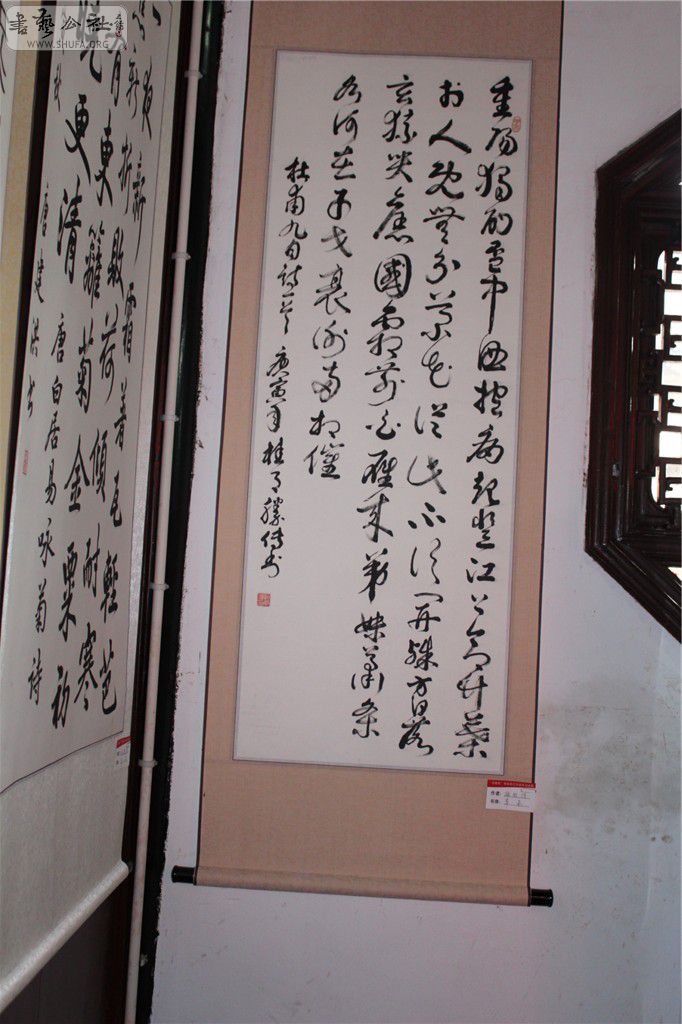 書藝公社
WWW.SHUFA.ORG
重陽獨酌盃中酒抱病起登江上台竹葉
於人既無分菊花從此不須開殊方日落
玄猿哭舊國霜前白雁來弟妹蕭條
各何在干戈衰謝兩相催
杜甫九日詩一首 庚寅年桂月勝傳書
夜新霜著瓦輕芭
新折敗荷傾耐寒
有東籬菊金粟初
更清
唐白居易咏菊詩
唐建洪书
作者: